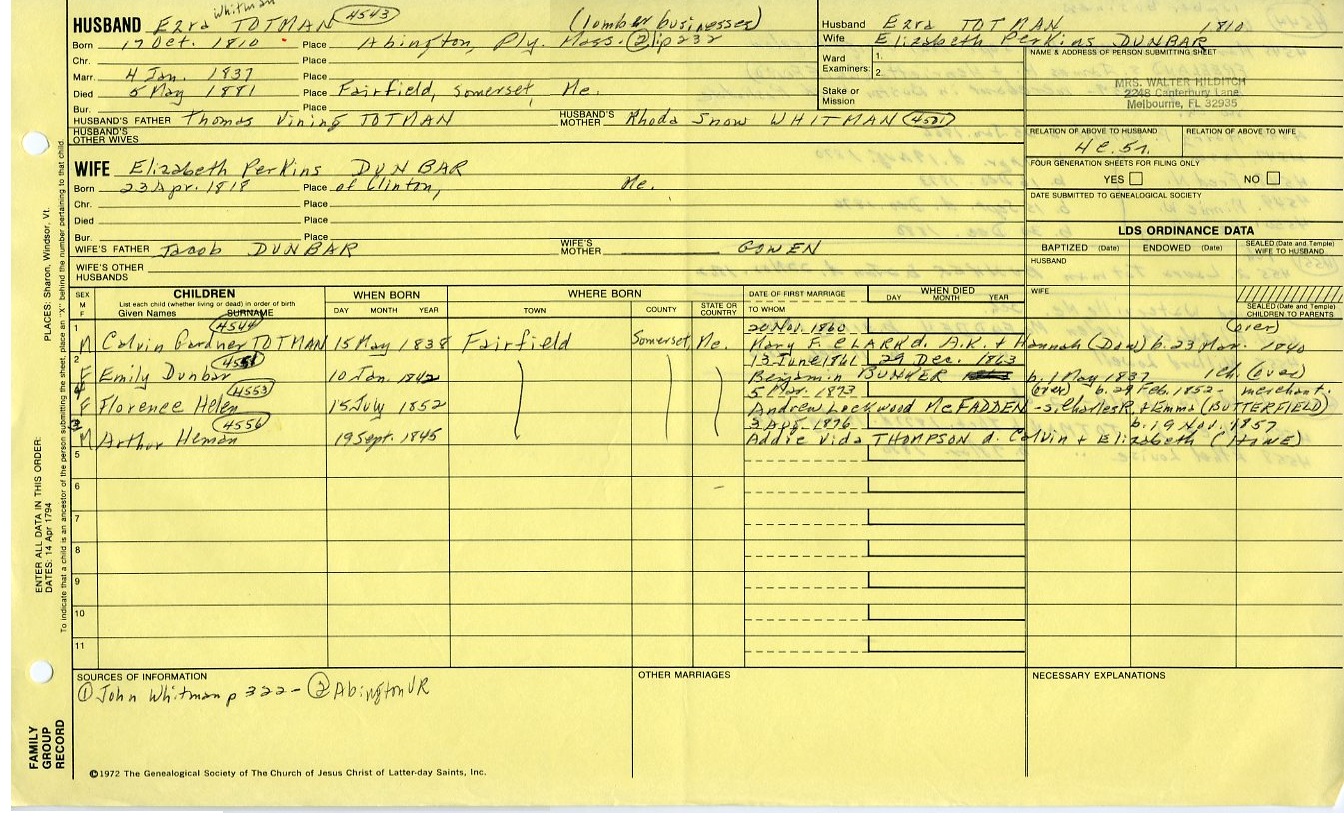 Whitman
HUSBAND Ezra TOTMAN 4543 (lomber businesses)
Born 17 Oct. 1810 Place Abington, Ply. Mass. ② 1:p232
Chr. Place
Marr. 4 Jan. 1837 Place
Died 5 May 1881 Place Fairfield, Somerset, Me.
Bur. Place
HUSBAND'S FATHER Thomas Vining TOTMAN HUSBAND'S MOTHER Rhoda Snow WHITMAN 4501
HUSBAND'S OTHER WIVES
Husband Ezra TOTMAN 1810
Wife Elizabeth Perkins DUNBAR
Ward Examiners: 1. 2.
Stake or Mission
NAME & ADDRESS OF PERSON SUBMITTING SHEET
MRS. WALTER HILDITCH
2248 Canterbury Lane
Melbourne, FL 32935
RELATION OF ABOVE TO HUSBAND RELATION OF ABOVE TO WIFE
4c.5r.
FOUR GENERATION SHEETS FOR FILING ONLY
YES NO
DATE SUBMITTED TO GENEALOGICAL SOCIETY
WIFE Elizabeth Perkins DUNBAR
Born 23 Apr. 1818 Place of Clinton, Me.
Chr. Place
Died Place
Bur. Place
WIFE'S FATHER Jacob DUNBAR WIFE'S MOTHER GOWEN
WIFE'S OTHER HUSBANDS
LDS ORDINANCE DATA
BAPTIZED (Date) ENDOWED (Date) SEALED (Date and Temple) WIFE TO HUSBAND
HUSBAND
WIFE
SEALED (Date and Temple) CHILDREN TO PARENTS
SEX M F CHILDREN WHEN BORN WHERE BORN DATE OF FIRST MARRIAGE WHEN DIED
List each child (whether living or dead) in order of birth
Given Names SURNAME DAY MONTH YEAR TOWN COUNTY STATE OR COUNTRY TO WHOM DAY MONTH YEAR
1 4544 20 Nov. 1860 (over)
M Calvin Gardner TOTMAN 15 May 1838 Fairfield Somerset, Me. Mary F. CLARK d. A.K. + Hannah (Dow) b. 23 Mar. 1840
2 4551 13 June 1861 29 Dec. 1863
F Emily Dunbar 10 Jan. 1842 Benjamin BUNKER b. 1 May 1837 1ch. (over)
4 4553 5 Mar. 1873 (over) b. 29 Feb. 1852 - merchant.
F Florence Helen 15 July 1852 Andrew Lockwood McFADDEN - s. Charles R. + Emma (BUTTERFIELD)
3 4556 3 Apr. 1876 b. 19 Nov. 1857
M Arthur Heman 19 Sept. 1845 Addie Vida THOMPSON d. Calvin + Elizabeth (HOWE)
5
6
7
8
9
10
11
SOURCES OF INFORMATION
① John Whitman p 322 - ② Abington VR
OTHER MARRIAGES
NECESSARY EXPLANATIONS
©1972 The Genealogical Society of The Church of Jesus Christ of Latter-day Saints, Inc.
FAMILY GROUP RECORD
ENTER ALL DATA IN THIS ORDER:
DATES: 14 Apr 1794
PLACES: Sharon, Windsor, Vt.
To indicate that a child is an ancestor of the person submitting the sheet, place an "X" behind the number pertaining to that child.